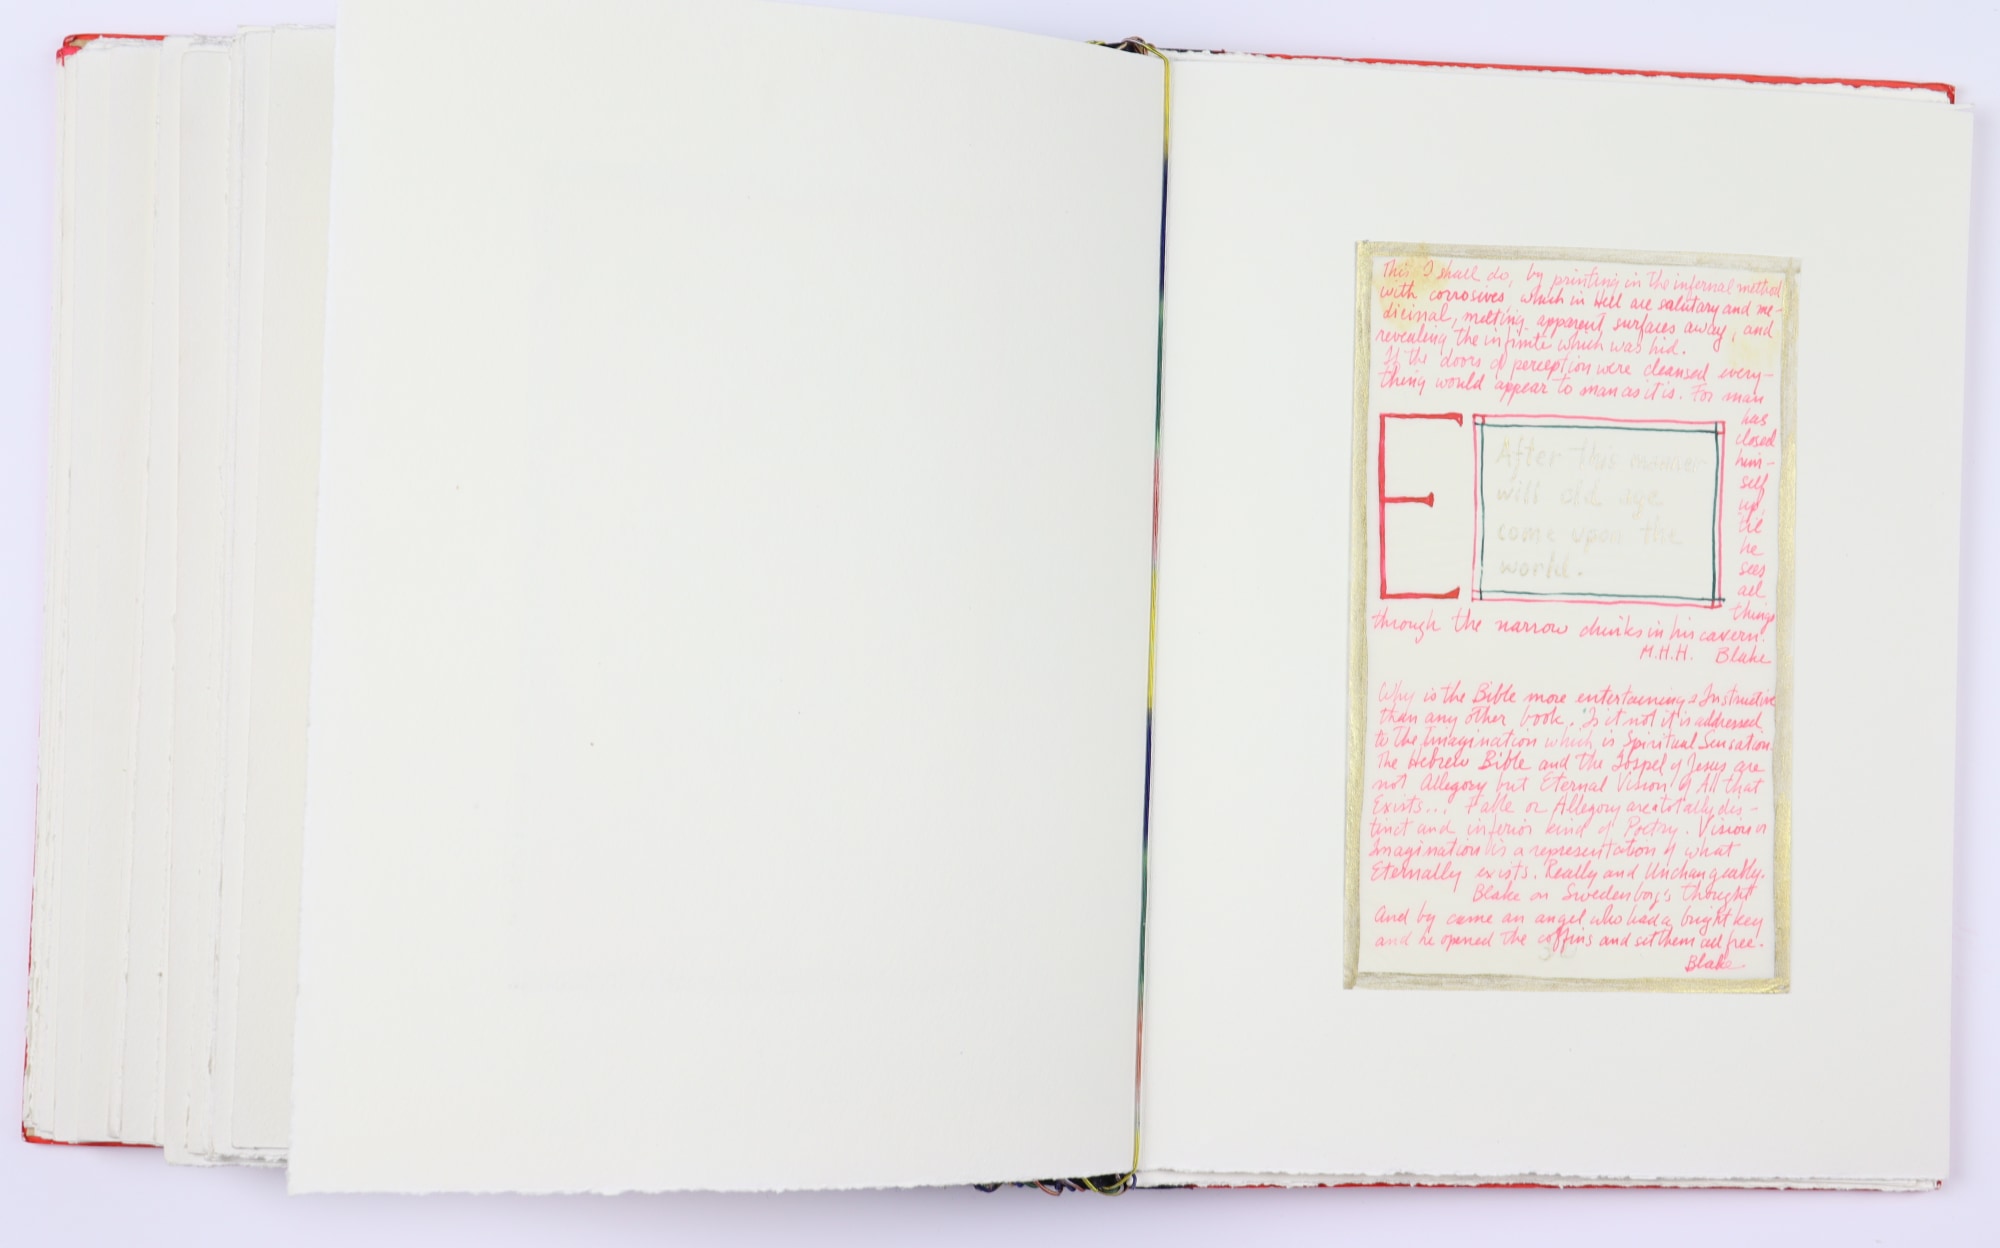 This I shall do, by printing in the infernal method
with corrosives, which in Hell are salutary and me-
dicinal, melting apparent surfaces away, and
revealing the infinite which was hid.
If the doors of perception were cleansed every-
thing would appear to man as it is. For man
has
closed
him-
self
up,
til
he
sees
all
things
E
After this manner
will old age
come upon the
world.
through the narrow chinks in his cavern.
M.H.H. Blake
Why is the Bible more entertaining & Instructive
than any other book. Is it not it is addressed
to the Imagination which is Spiritual Sensation.
The Hebrew Bible and the Gospel of Jesus are
not Allegory but Eternal Vision of All that
Exists... Fable or Allegory are totally dis-
tinct and inferior kind of Poetry. Vision or
Imagination is a representation of what
Eternally exists. Really and Unchangeably.
Blake on Swedenborg's thought
And by came an angel who had a bright key
and he opened the coffins and set them all free.
Blake.